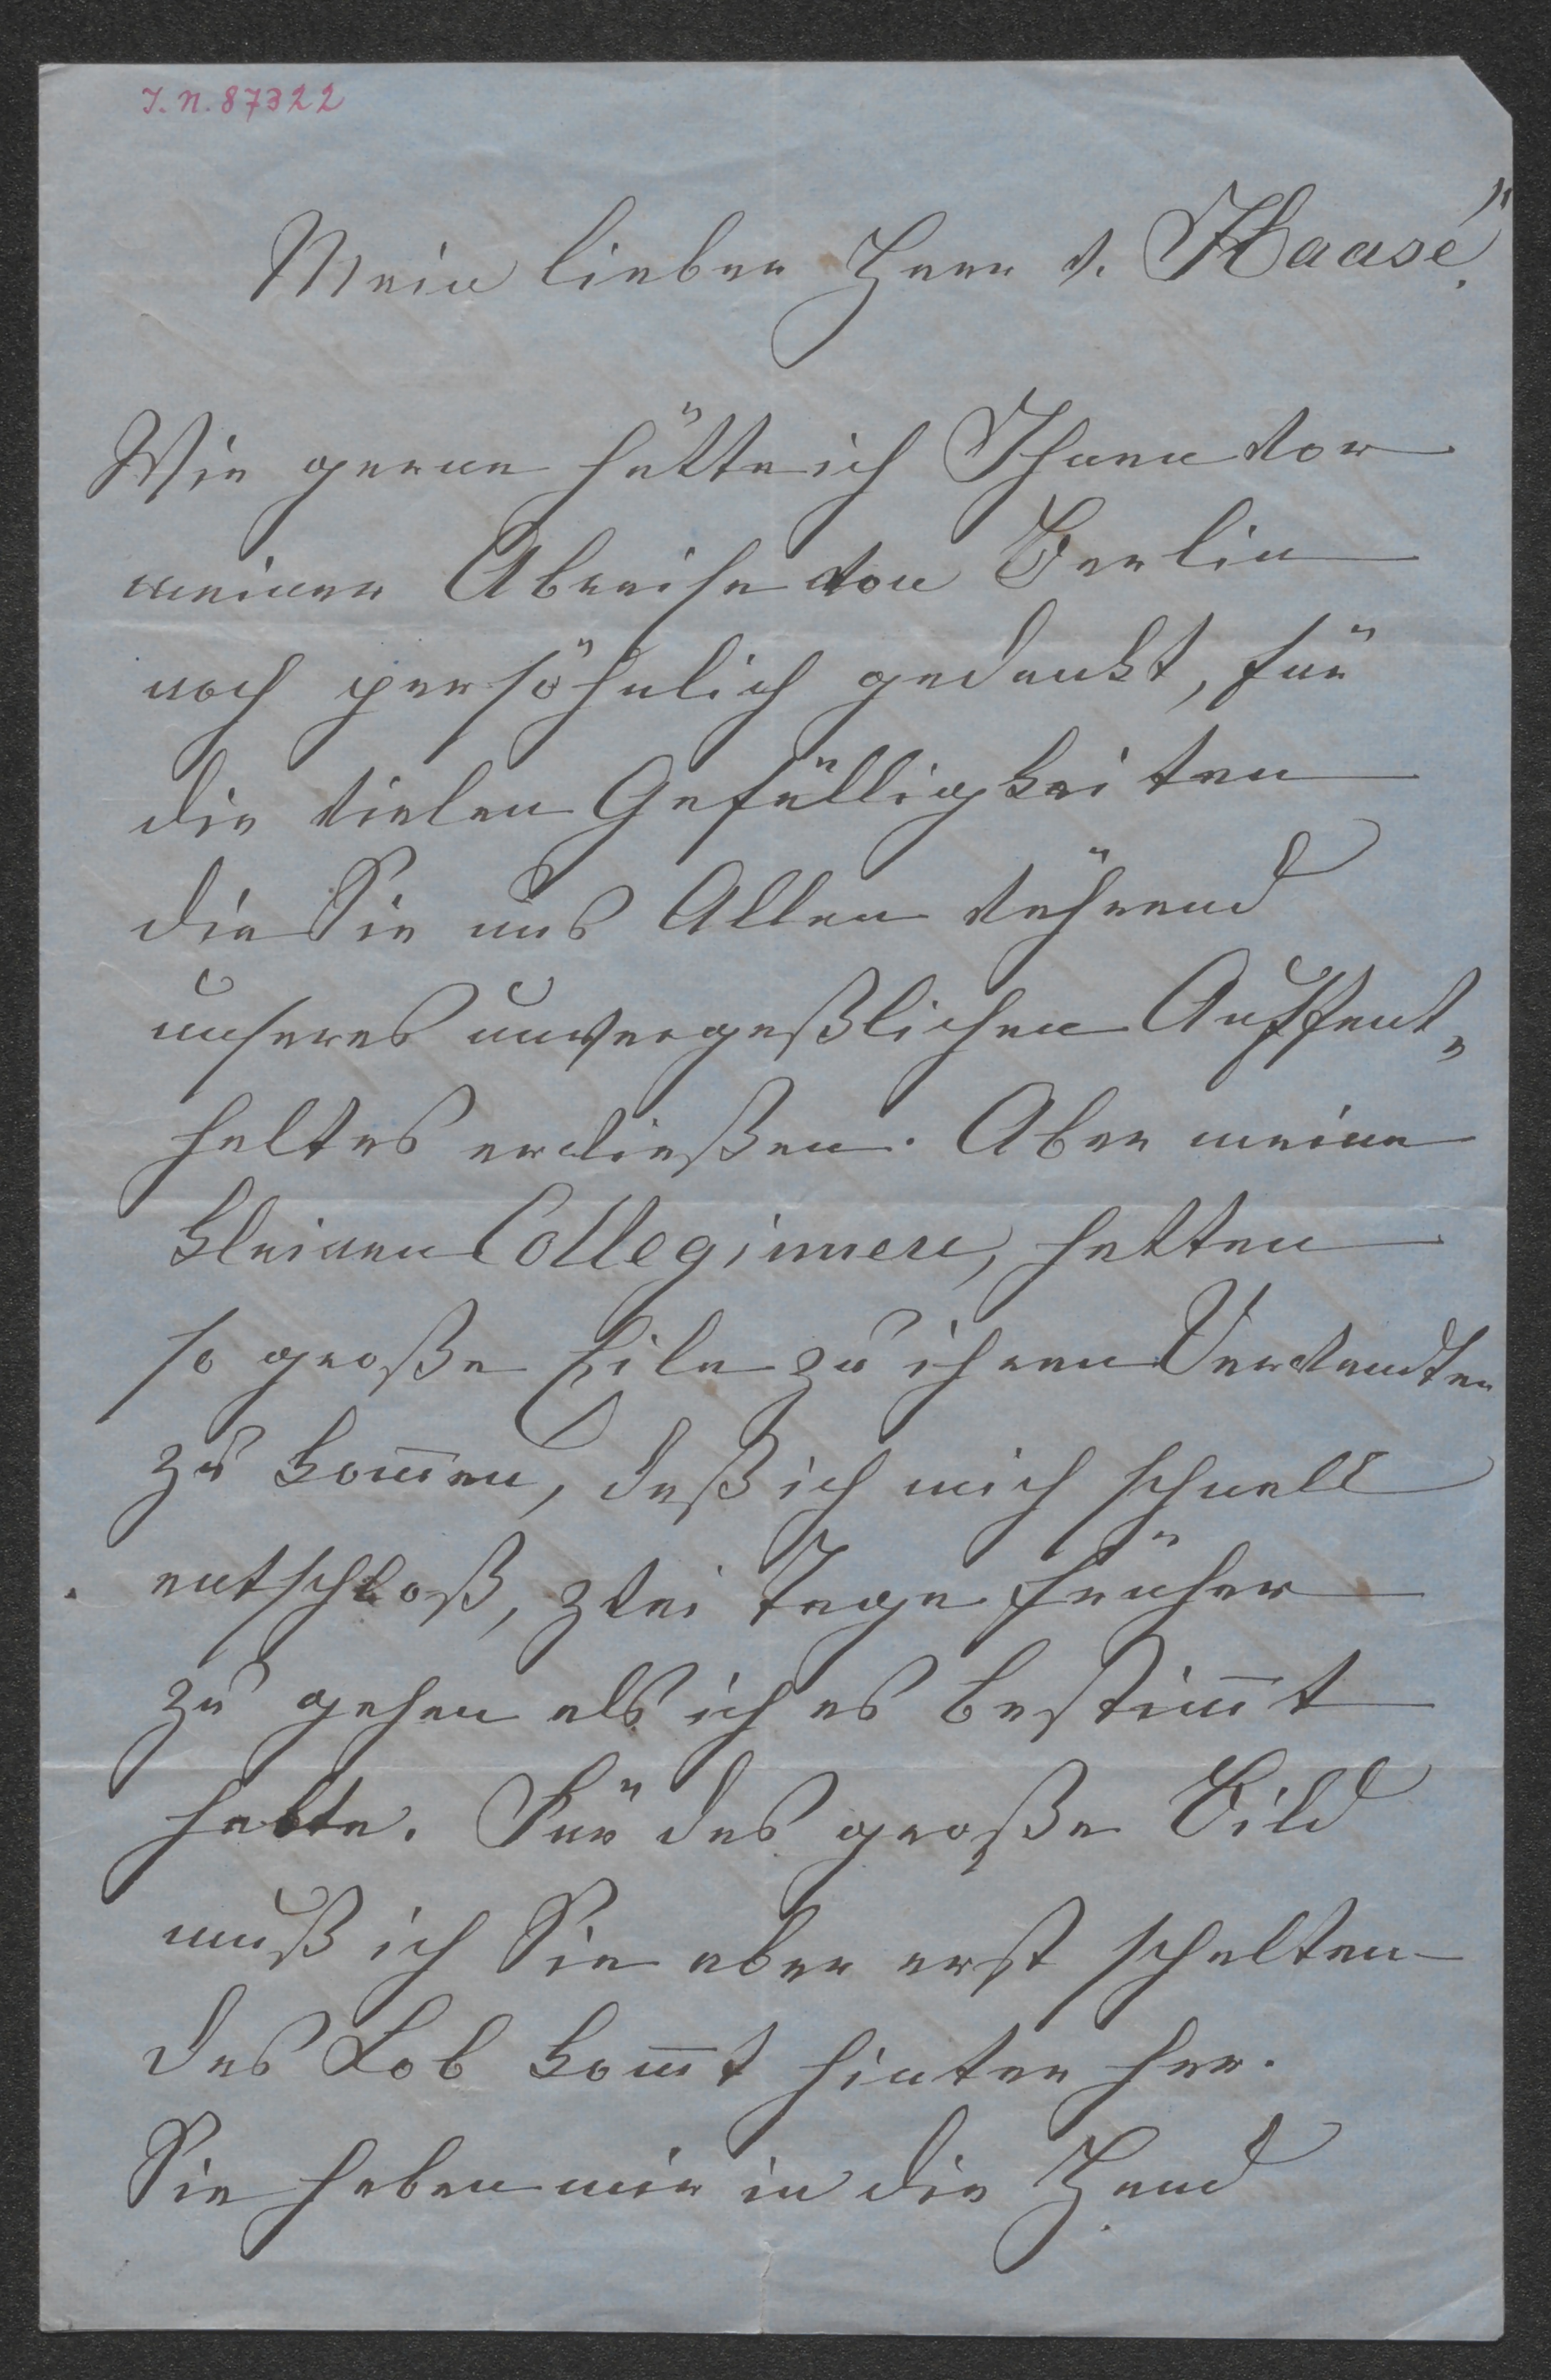 I. N. 87322
Mein lieber Herr v. Haasé!
Wie gerne hätte ich Ihnen vor
meiner Abreise von Berlin
noch persöhnlich gedankt, für
die vielen Gefälligkeiten
die Sie uns Allen während
unseres unvergeßlichen Auffent-
haltes erwießen. Aber meine
kleinen Colleginnen, hatten
so große Eile zu ihren Verwandten
zu kom̄en, daß ich mich schnell
entschloß, zwei Tage früher
zu gehen als ich es bestim̄t
hatte. Für das große Bild
muß ich Sie aber erst schelten
das Lob kom̄t hinter her.
Sie haben mir in die Hand